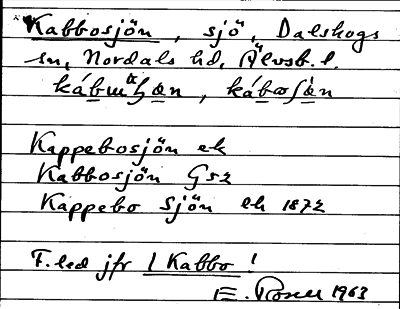 Kabbosjön, sjö, Dalskogs
sn, Nordals hd, Älvsb. l.
Kappebosjön ek
Kabbosjön Gsz
Kappebo sjön ek 1872
F. led jfr 1 Kabbo !
E. Rosell 1963